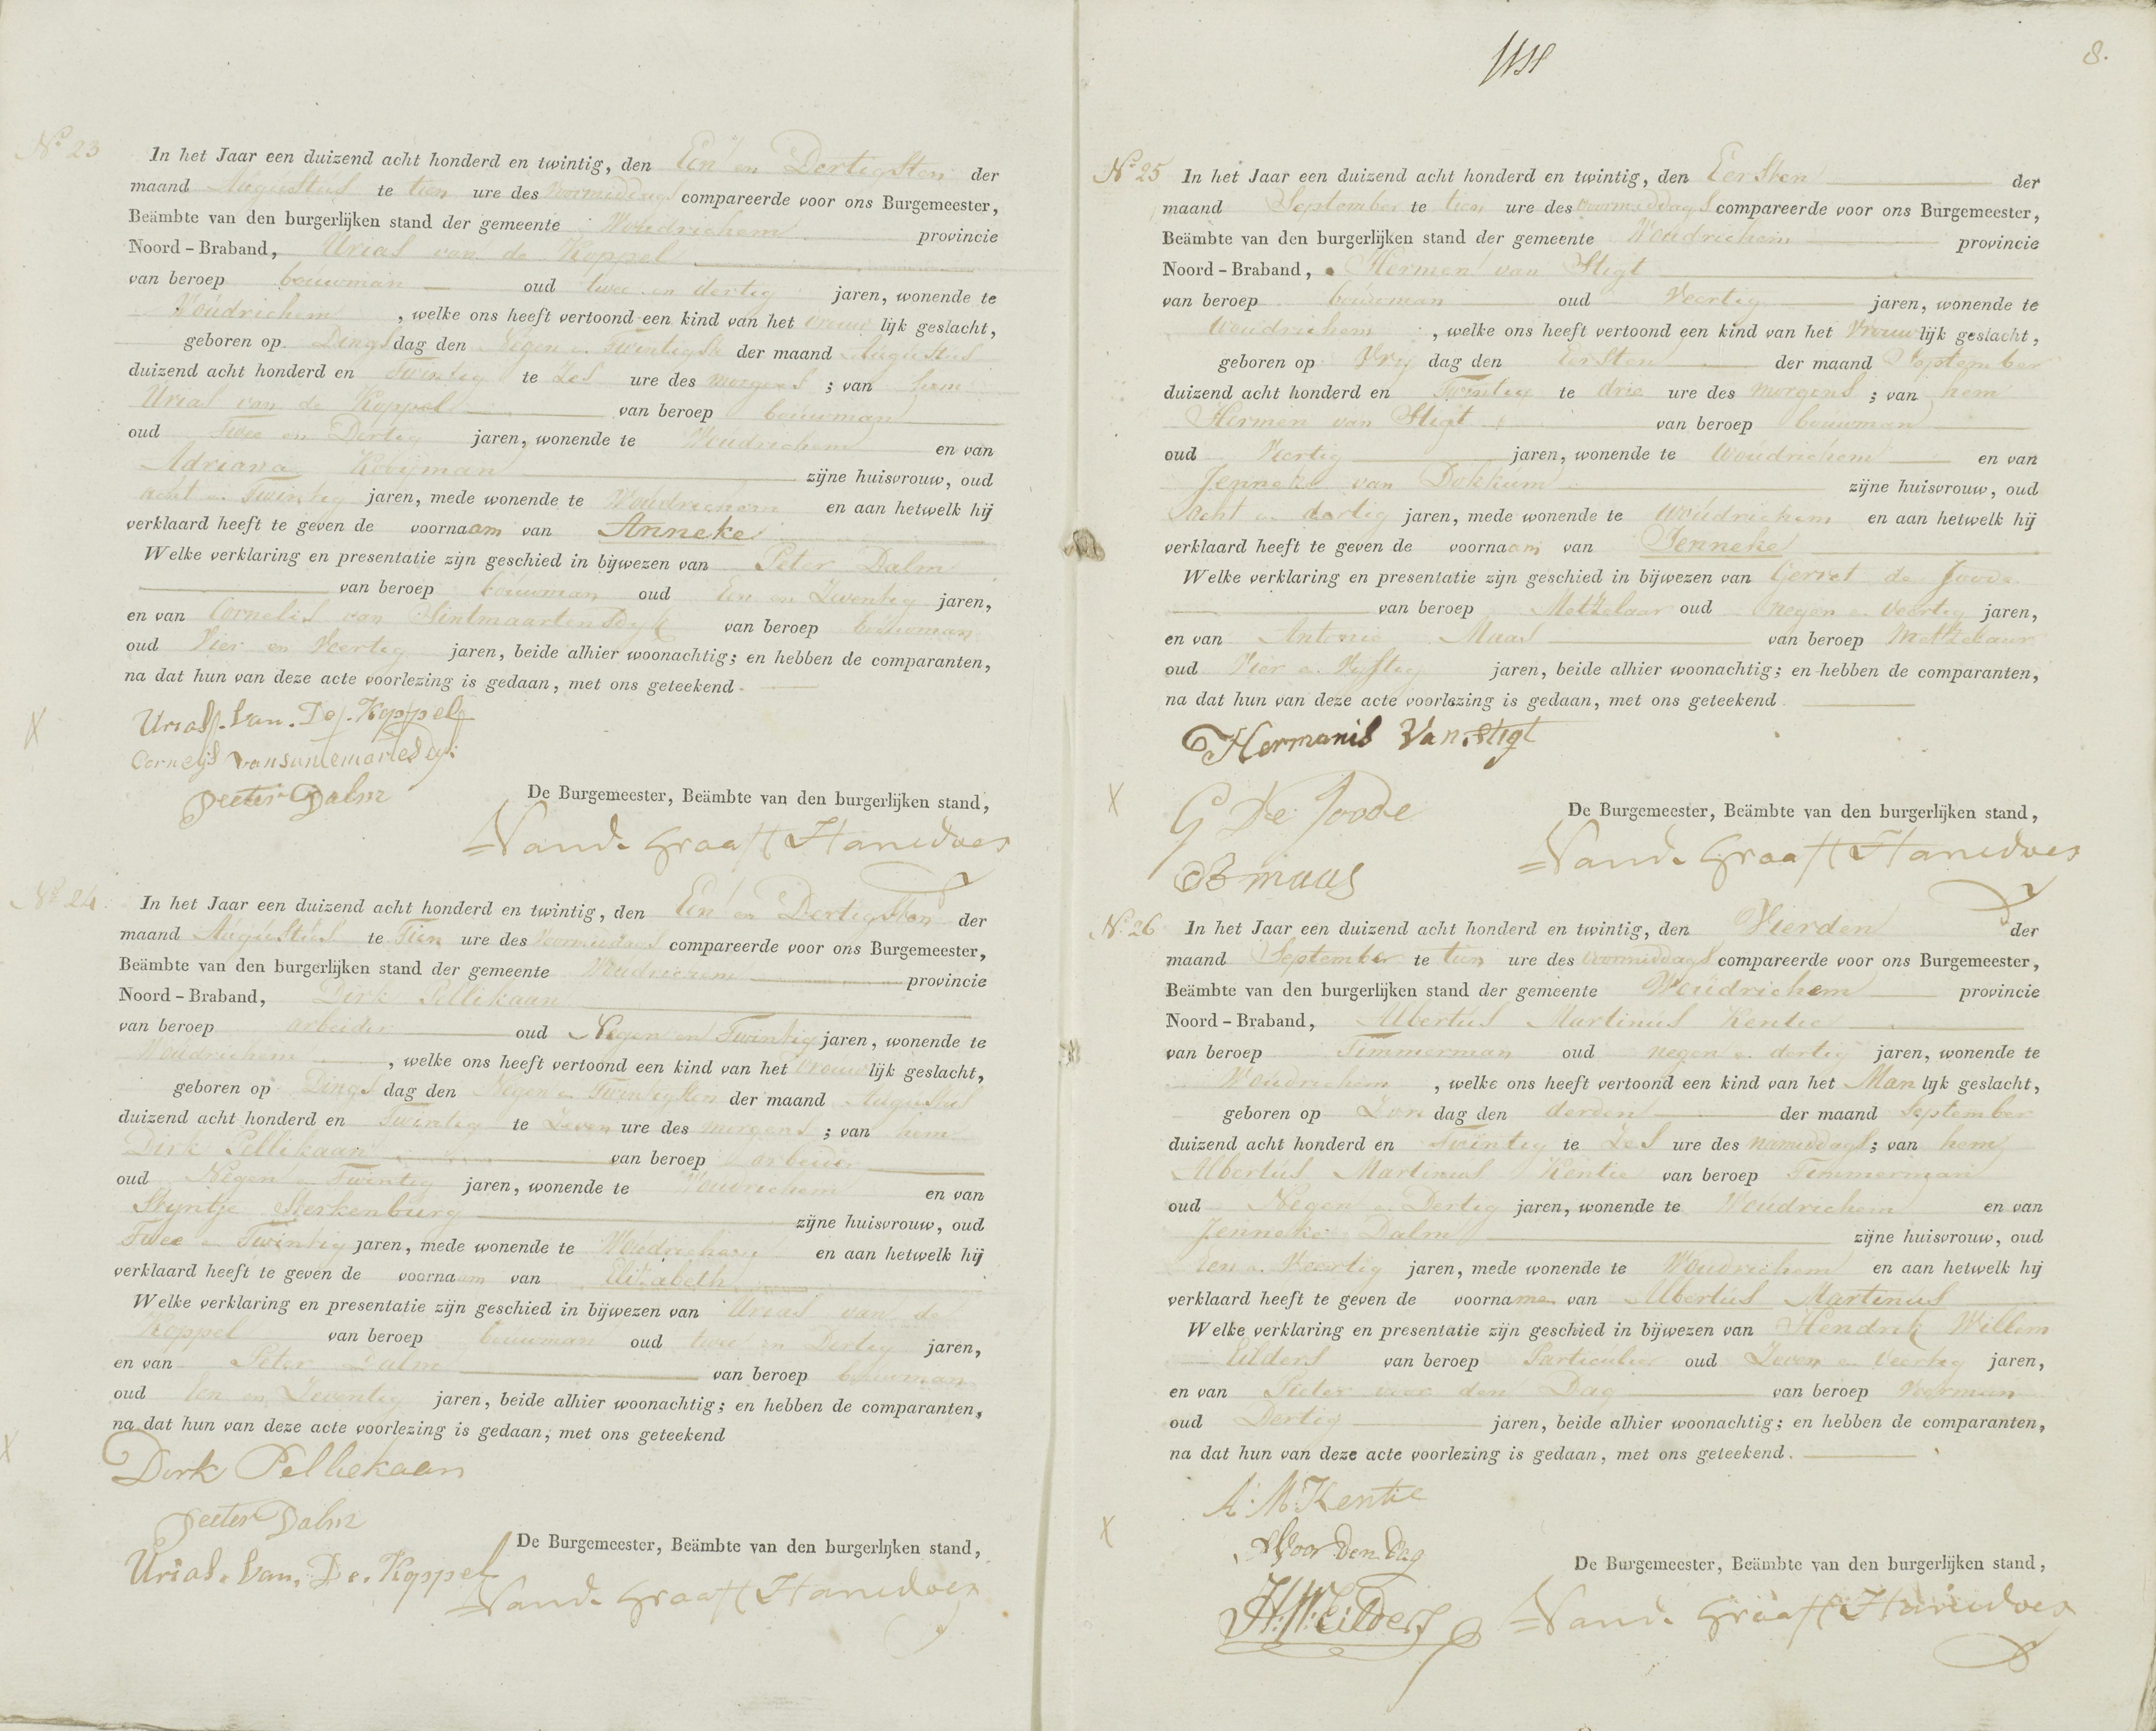 Nº 23
In het Jaar een duizend acht honderd en twintig, den Een en Dertigsten der
maand Augustus te tien ure des voormiddags compareerde voor ons Burgemeester,
Beämbte van den burgerlijken stand der gemeente Woudrichem provincie
Noord-Braband, Urias van de Koppel
van beroep bouwman oud twee en dertig jaren, wonende te
Woudrichem, welke ons heeft vertoond een kind van het vrouwlijk geslacht,
geboren op Dingsdag den Negen en Twintigste der maand Augustus
duizend acht honderd en Twintig te Zes ure des morgens; van hem
Urias van de Koppel van beroep bouwman
oud Twee en Dertig jaren, wonende te Woudrichem en van
Adriana Kooijman zijne huisvrouw, oud
acht en Twintig jaren, mede wonende te Woudrichem en aan hetwelk hij
verklaard heeft te geven de voornaam van Anneke
Welke verklaring en presentatie zijn geschied in bijwezen van Peter Dalm
van beroep bouwman oud Een en Zeventig jaren,
en van Cornelis van Sintmaartensdyk van beroep bouwman
oud Vier en Veertig jaren, beide alhier woonachtig; en hebben de comparanten,
na dat hun van deze acte voorlezing is gedaan, met ons geteekend.
Urias. Van. De. Koppel
Cornelijs
Peeter Dalm
De Burgemeester, Beämbte van den burgerlijken stand,
Vand. Graaff Hanedoes
Nº 24
In het Jaar een duizend acht honderd en twintig, den Een en Dertigsten der
maand Augustus te Tien ure des voormiddags compareerde voor ons Burgemeester,
Beämbte van den burgerlijken stand der gemeente Woudrichem provincie
Noord-Braband, Dirk Pellikaan
van beroep arbeider oud Negen en Twintig jaren, wonende te
Woudrichem, welke ons heeft vertoond een kind van het vrouwlijk geslacht,
geboren op Dingsdag den Negen en Twintigsten der maand Augustus
duizend acht honderd en Twintig te Zeven ure des morgens; van hem
Dirk Pellikaan van beroep arbeider
oud Negen en Twintig jaren, wonende te Woudrichem en van
Stijntje Sterkenburg zijne huisvrouw, oud
Twee en Twintig jaren, mede wonende te Woudrichem en aan hetwelk hij
verklaard heeft te geven de voornaam van Elizabeth
Welke verklaring en presentatie zijn geschied in bijwezen van Urias van de
Koppel van beroep bouwman oud twee en Dertig jaren,
en van Peter Dalm van beroep bouwman
oud Een en Zeventig jaren, beide alhier woonachtig; en hebben de comparanten,
na dat hun van deze acte voorlezing is gedaan, met ons geteekend
Dirk Pelliekaan
Peeter Dalm
Urias. Van. De. Koppel
De Burgemeester, Beämbte van den burgerlijken stand,
Vand. Graaff Hanedoes
8.
Nº 25
In het Jaar een duizend acht honderd en twintig, den Eersten der
maand September te tien ure des voormiddags compareerde voor ons Burgemeester,
Beämbte van den burgerlijken stand der gemeente Woudrichem provincie
Noord-Braband, Hermen van Stigt
van beroep bouwman oud Veertig jaren, wonende te
Woudrichem, welke ons heeft vertoond een kind van het Vrouwlijk geslacht,
geboren op Vrij dag den Eersten der maand September
duizend acht honderd en Twintig te drie ure des morgens; van hem
Hermen van Stigt van beroep bouwman
oud Veertig jaren, wonende te Woudrichem en van
Jenneke van Dokkum zijne huisvrouw, oud
acht en dertig jaren, mede wonende te Woudrichem en aan hetwelk hij
verklaard heeft te geven de voornaam van Jenneke
Welke verklaring en presentatie zijn geschied in bijwezen van Gerret de Joode
van beroep Metzelaar oud negen en veertig jaren,
en van Antonie Maas van beroep Metzelaar
oud Vier en Vyftig jaren, beide alhier woonachtig; en hebben de comparanten,
na dat hun van deze acte voorlezing is gedaan, met ons geteekend.
Hermanis Van Stigt
G De Joode
maas
De Burgemeester, Beämbte van den burgerlijken stand,
Vand. Graaff Hanedoes
Nº 26
In het Jaar een duizend acht honderd en twintig, den Vierden der
maand September te tien ure des voormiddags compareerde voor ons Burgemeester,
Beämbte van den burgerlijken stand der gemeente Woudrichem provincie
Noord-Braband, Albertus Martinus Kentie
van beroep Timmerman oud negen en dertig jaren, wonende te
Woudrichem, welke ons heeft vertoond een kind van het Man lijk geslacht,
geboren op Zon dag den derden der maand September
duizend acht honderd en Twintig te Zes ure des namiddags; van hem
Albertus Martinus Kentie van beroep Timmerman
oud Negen en Dertig jaren, wonende te Woudrichem en van
Jenneke Dalm zijne huisvrouw, oud
Een en Veertig jaren, mede wonende te Woudrichem en aan hetwelk hij
verklaard heeft te geven de voornamen van Albertus Martinus
Welke verklaring en presentatie zijn geschied in bijwezen van Hendrik Willem
Eilders van beroep Particulier oud Zeven en Veertig jaren,
en van Pieter voor den Dag van beroep Voerman
oud Dertig jaren, beide alhier woonachtig; en hebben de comparanten,
na dat hun van deze acte voorlezing is gedaan, met ons geteekend.
A. M. Kentie
Voor Den Dag
H. W. Eilders
De Burgemeester, Beämbte van den burgerlijken stand,
Vand. Graaff Hanedoes